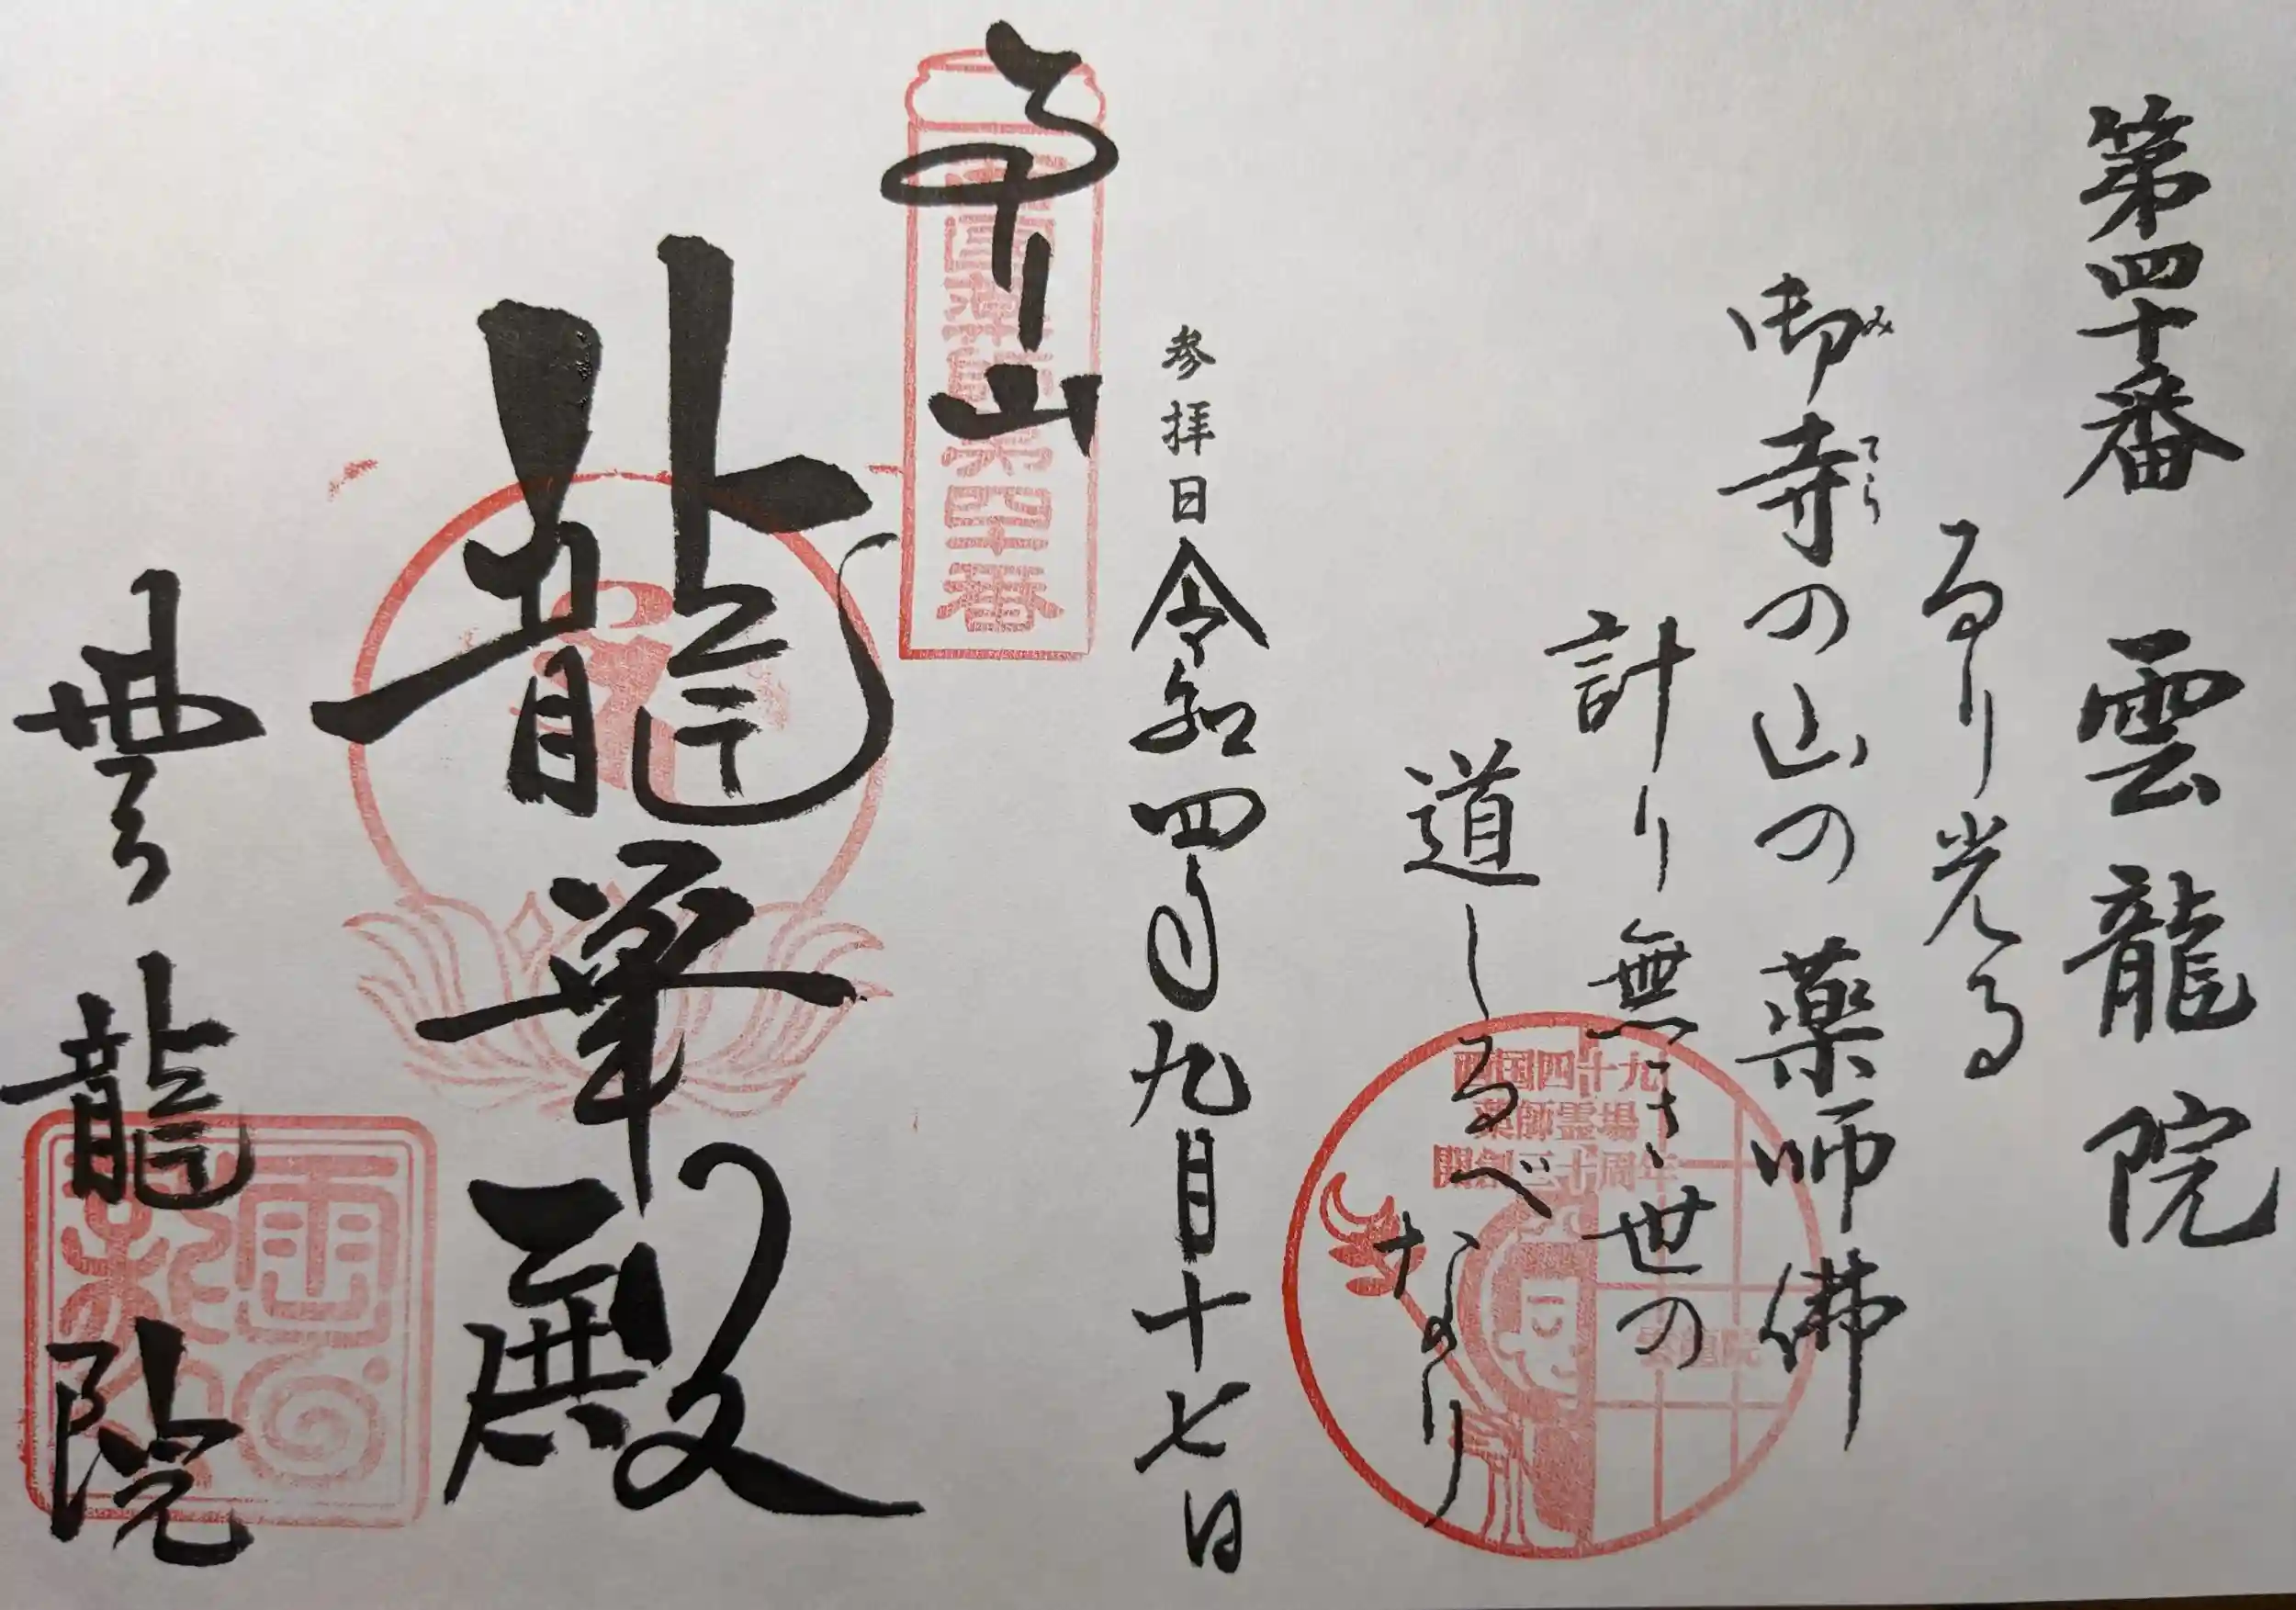 第四十番 雲龍院
るり光る
御寺の山の薬師佛
み
てら
計り無き世の
道しるべなり
西国四十九
薬師霊場
開創三十周年
雲龍院
参拝日令和四年九月十七日
西国薬師第四十番
山
龍華殿
雲龍院